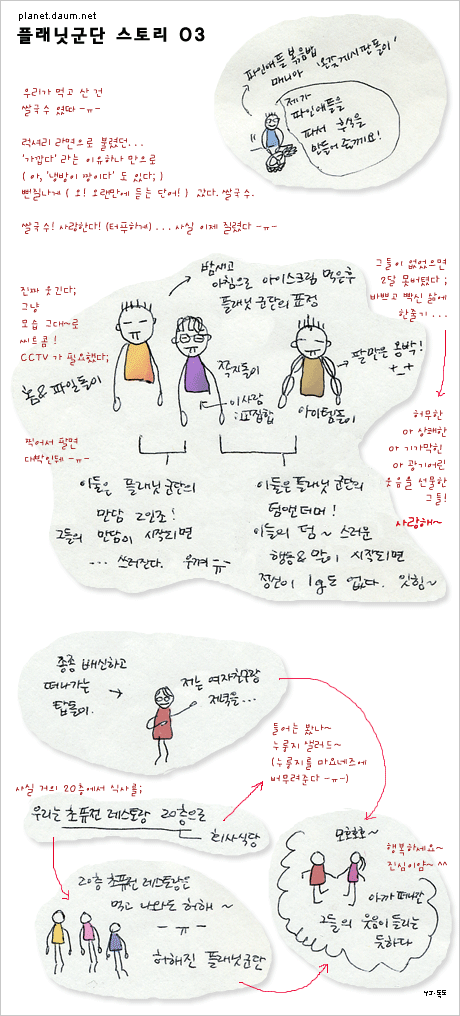 planet.daum.net
플래닛군단 스토리 03
파인애플볶음밥
매니아 '온갖게시판돌이'
제가
파인애플을
파서 부식을
만들어 올께요!
우리가 먹고 산 건
쌀국수 였따 -ㅠ-
럭셔리 라면으로 불렸던...
'가깝다' 라는 이유하나 만으로
( 아, '냉방이 빵이다' 도 있다; )
뻔질나게 ( 오! 오랜만에 듣는 단어! ) 갔다. 쌀국수.
쌀국수! 사랑한다! (터푸하게) ... 사실 이제 질렸다 -ㅠ-
그들이 없었으면
2달 못버텼다 ;
바쁘고 빡신 삶에
한줄기 ...
밤새고
아침으로 아이스크림 먹은후
플래닛 군단의 표정
진짜 웃긴다;
그냥
모습 그대~로
씨트콤 !
CCTV 가 필요했다;
홈& 파일돌이
쪽지돌이
이사람
표집합
아이템돌이
팔만은 몸빡!
+_+
허무한
아 상쾌한
아 기가막힌
아 광기어린
웃음을 선물한
그들!
사랑해~
찍어서 팔면
대박인데 -ㅠ-
이들은 플래닛 군단의
만담 2인조!
그들의 만담이 시작되면
... 쓰러진다. 웃겨 ㅠ
이들은플래닛 군단의
덤앤더머!
이들의 덤~ 스러운
행동&말이 시작되면
정신이 1g도 없다. 잇힝~
종종 배신하고
떠나가는
탑돌이.
저는 여자친구랑
저녁을...
들어는 봤나~
누룽지 샐러드~
(누룽지를 마요네즈에
버무려준다 -ㅠ-)
사실 거의 20층에서 식사를;
우리는 초퓨전 레스토랑 20층으로
회사식당
모호호호~
행복하세요~
진심이얌~ ^^
아까 떠나간
그들의 웃음이 들리는
듯하다
20층 초퓨전 레스토랑은
먹고 나와도 허해 ~
-ㅠ-
허해진 플래닛군단
YJ.독도